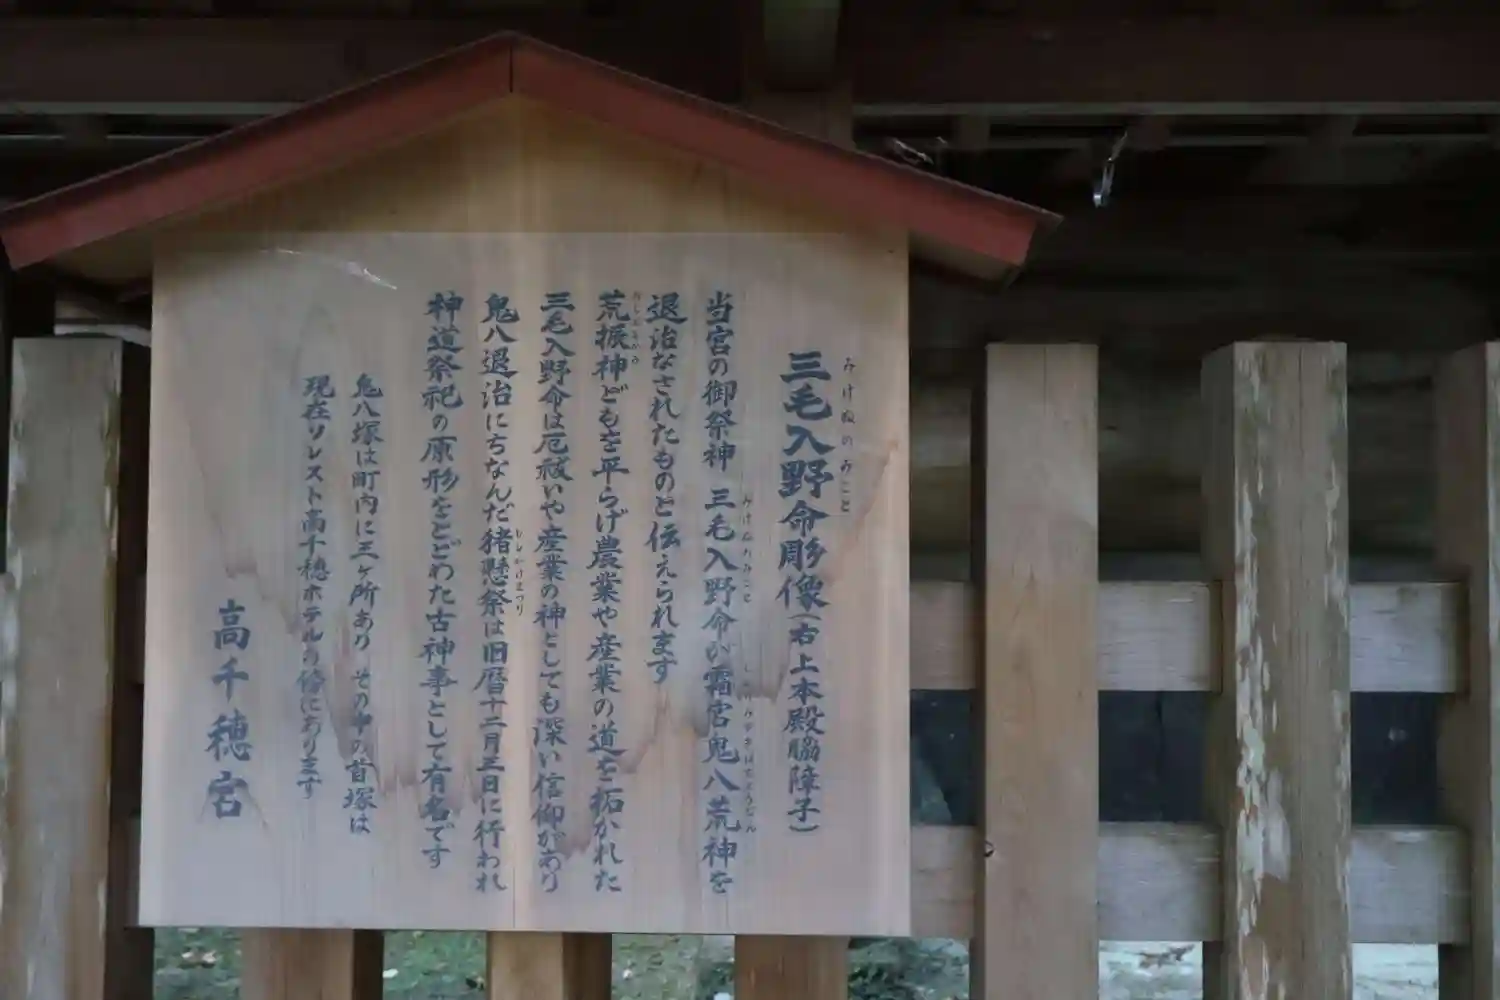 三毛入野命彫像(右上本殿脇障子)
みけぬのみこと
当宮の御祭神 三毛入野命が霜宮鬼八荒神を
みけぬのみこと
退治なされたものと伝えられます
荒振神どもを平らげ農業や産業の道を拓かれた
三毛入野命は厄祓いや産業の神としても深い信仰があり
鬼八退治にちなんだ猪懸祭は旧暦十二月三日に行われ
ししかけまつり
神道祭祀の原形をとどめた古神事として有名です
鬼八塚は町内に三ヶ所あり その中の首塚は
現在ソレスト高千穂ホテルの傍にあります
高千穂宮